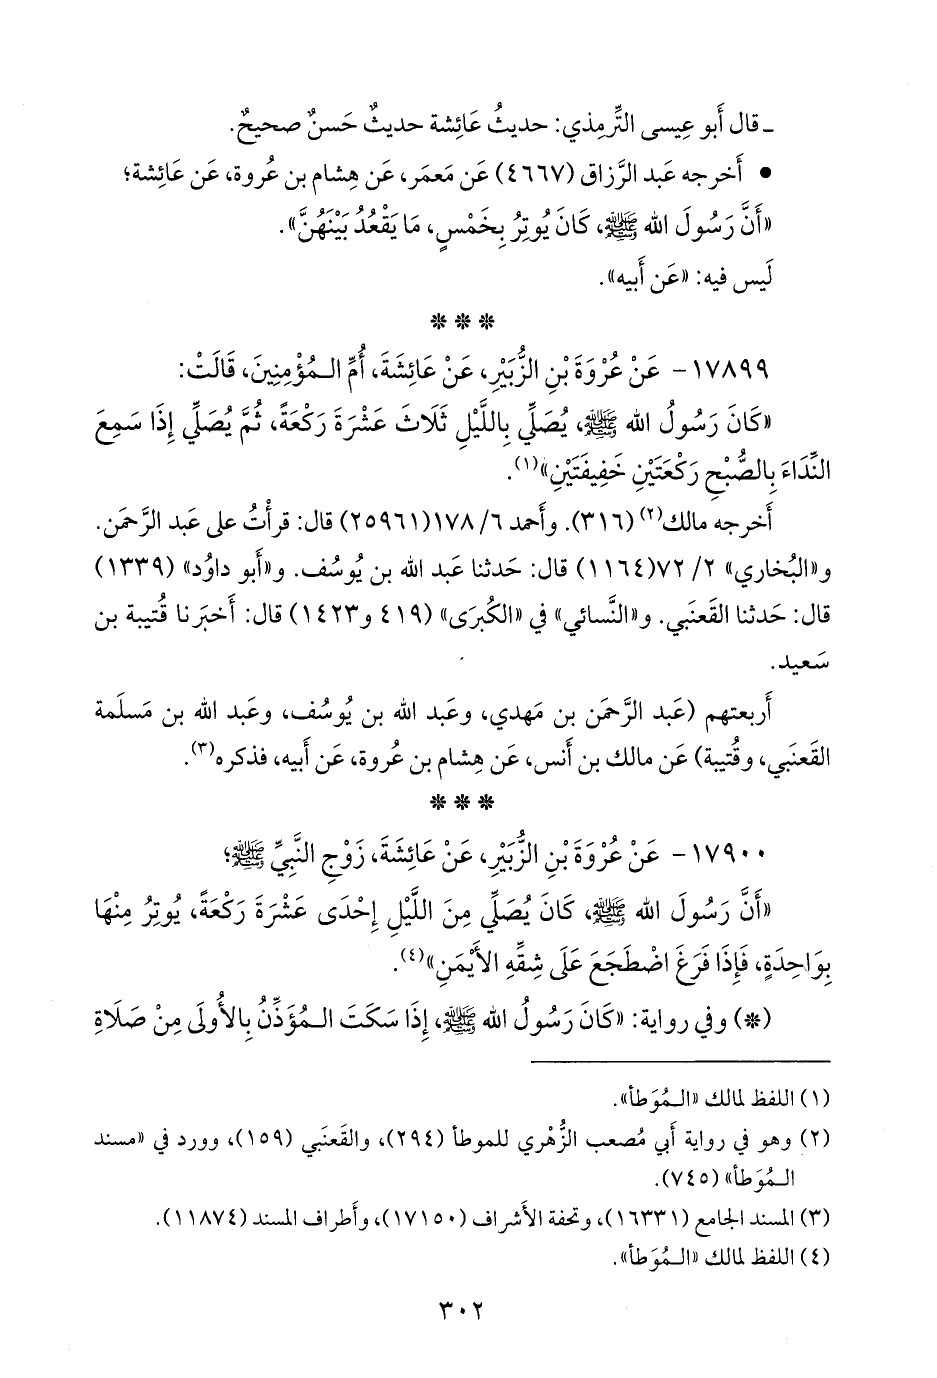 ـ قال أَبو عِيسى التِّرمِذي: حديثُ عَائِشة حديثٌ حَسنٌ صحيحٌ.
• أَخرجه عَبد الرَّزاق (٤٦٦٧) عَن مَعمَر، عَن هِشام بن عُروة، عَن عائِشة؛
«أَنَّ رَسُولَ الله ﷺ، كَانَ يُوتِرُ بِخَمْسٍ، مَا يَقْعُدُ بَيْنَهُنَّ».
لَيس فيه: «عَن أَبيه».
* * *
١٧٨٩٩ - عَنْ عُرْوَةَ بْنِ الزُّبَيْرِ، عَنْ عَائِشَةَ، أُمِّ الـمُؤْمِنِينَ، قَالَتْ:
«كَانَ رَسُولُ الله ﷺ، يُصَلِّي بِاللَّيْلِ ثَلَاثَ عَشْرَةَ رَكْعَةً، ثُمَّ يُصَلِّي إِذَا سَمِعَ
النِّدَاءَ بِالصُّبْحِ رَكْعَتَيْنِ خَفِيفَتَيْنِ»(١).
أَخرجه مالك(٢) (٣١٦). وأَحمد ٦/ ١٧٨(٢٥٩٦١) قال: قرأْتُ على عَبد الرَّحمَن.
و«البُخاري» ٢/ ٧٢(١١٦٤) قال: حَدثنا عَبد الله بن يُوسُف. و«أَبو داوُد» (١٣٣٩)
قال: حَدثنا القَعنَبي. و«النَّسائي» في «الكُبرَى» (٤١٩ و١٤٢٣) قال: أَخبَرنا قُتيبة بن
سَعيد.
أَربعتهم (عَبد الرَّحمَن بن مَهدي، وعَبد الله بن يُوسُف، وعَبد الله بن مَسلَمة
القَعنَبي، وقُتيبة) عَن مالك بن أَنس، عَن هِشام بن عُروة، عَن أَبيه، فذكره(٣).
* * *
١٧٩٠٠ - عَنْ عُرْوَةَ بْنِ الزُّبَيْرِ، عَنْ عَائِشَةَ، زَوْجِ النَّبِيِّ ﷺ؛
«أَنَّ رَسُولَ الله ﷺ، كَانَ يُصَلِّي مِنَ اللَّيْلِ إِحْدَى عَشْرَةَ رَكْعَةً، يُوتِرُ مِنْهَا
بِوَاحِدَةٍ، فَإِذَا فَرَغَ اضْطَجَعَ عَلَى شِقِّهِ الأَيْمَنِ»(٤).
(*) وفي رواية: «كَانَ رَسُولُ الله ﷺ، إِذَا سَكَتَ الـمُؤَذِّنُ بِالأُولَى مِنْ صَلَاةِ
(١) اللفظ لمالك «الـمُوَطأ».
(٢) وهو في رواية أَبي مُصعب الزُّهْري للموطأ (٢٩٤)، والقَعنَبي (١٥٩)، وورد في «مسند
الـمُوَطأ» (٧٤٥).
(٣) المسند الجامع (١٦٣٣١)، وتحفة الأشراف (١٧١٥٠)، وأَطراف المسند (١١٨٧٤).
(٤) اللفظ لمالك «الـمُوَطأ».
٣٠٢